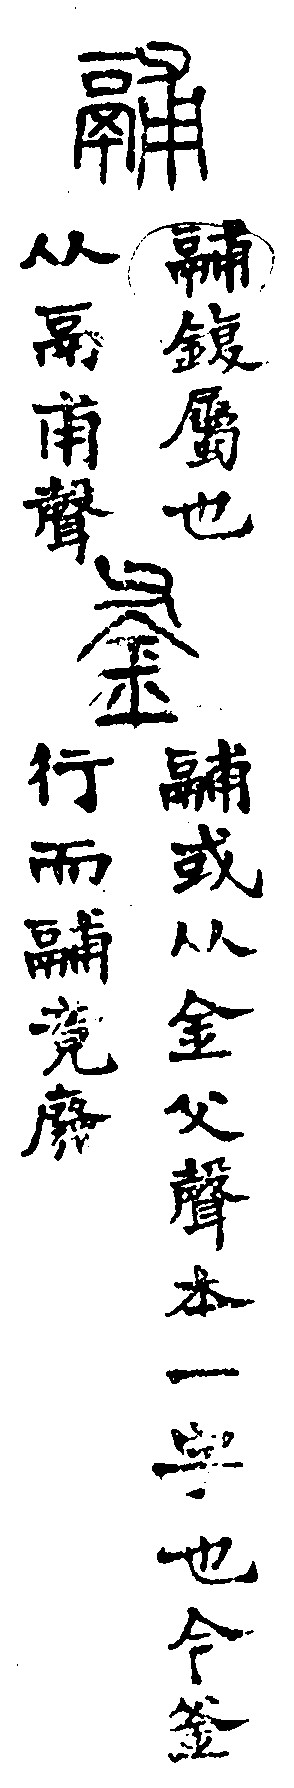 鬴
鬴鍑屬也
从鬲甫聲
釜
鬴或从金父聲本一字也今釜
行而鬴竟廢